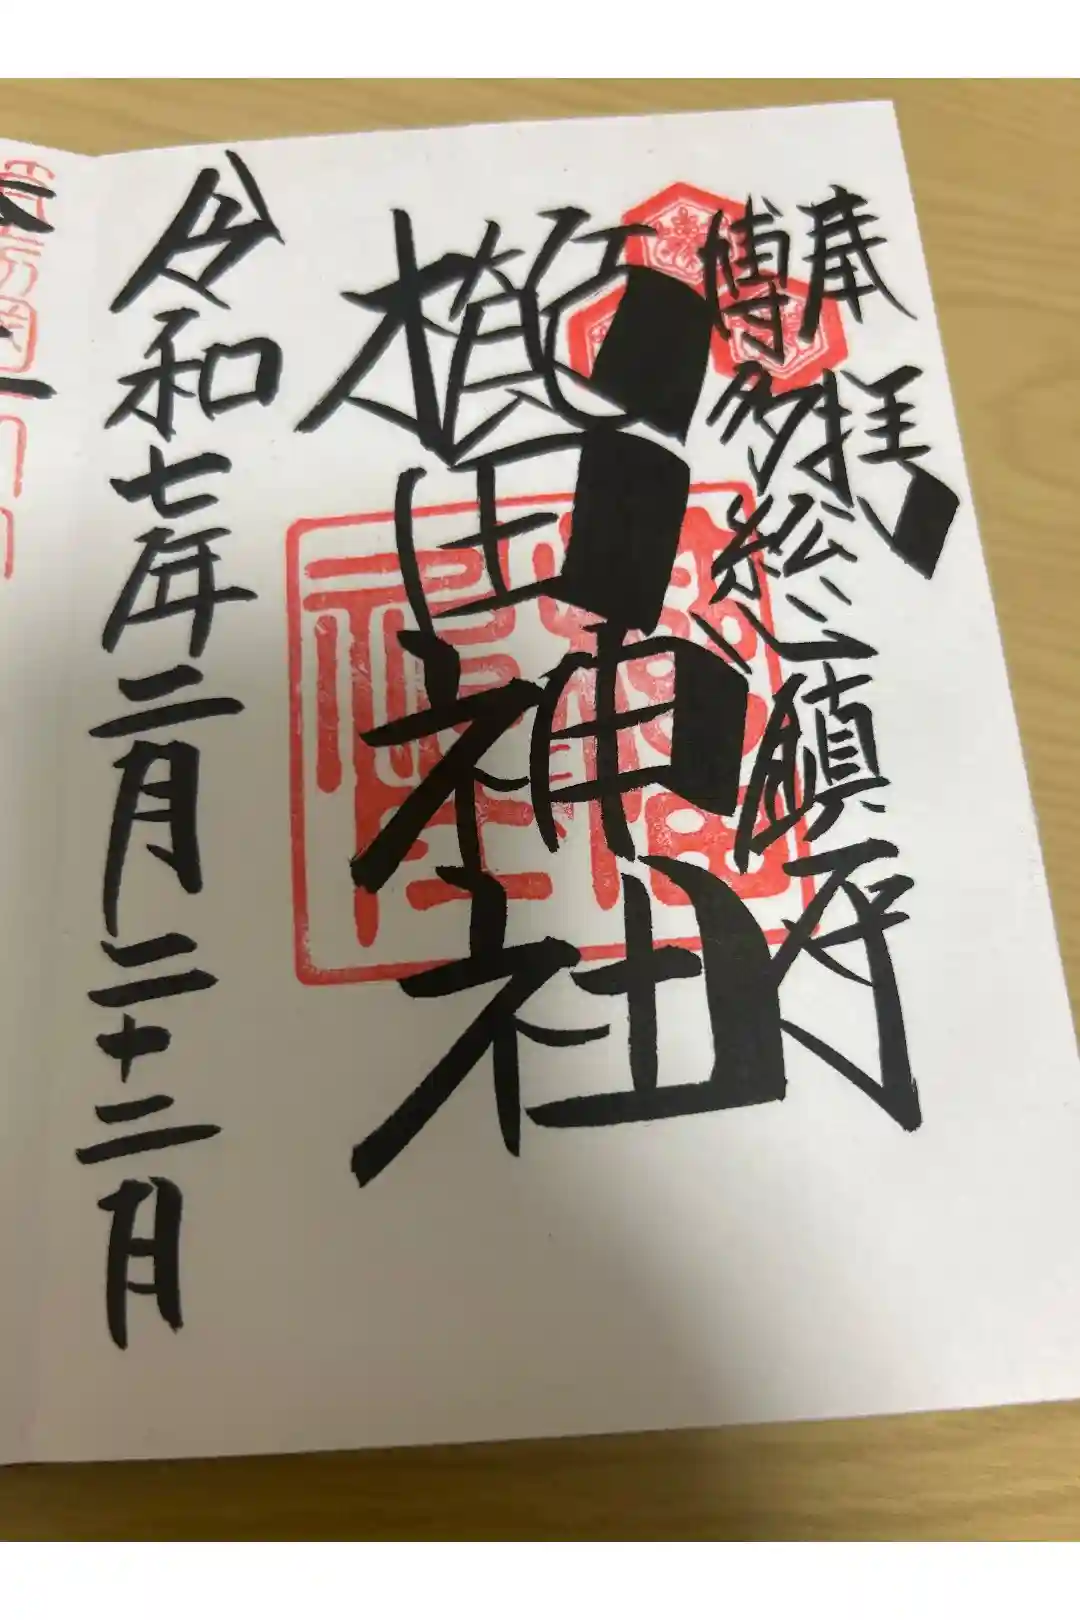 奉拝
博多総鎮守
櫛田神社
令和七年二月二十二日